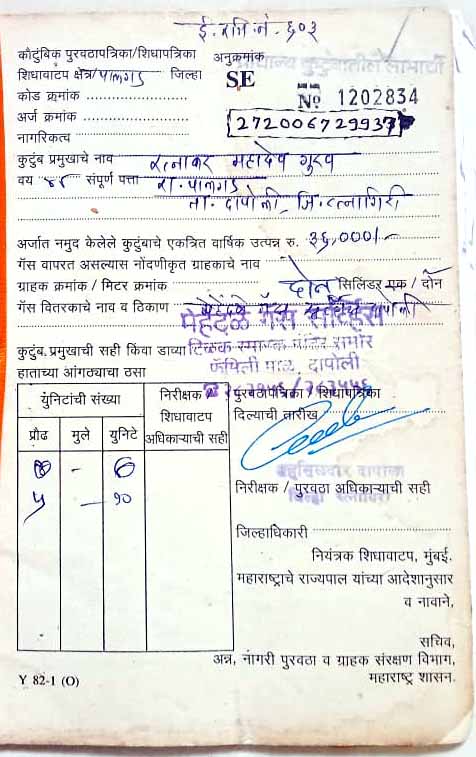 ई. रजि. नं. ६०३
कौटुंबिक पुरवठापत्रिका/शिधापत्रिका अनुक्रमांक
प्राधान्य कुटुंबातील लाभार्थी
शिधावाटप क्षेत्र/पालगड जिल्हा SE
कोड क्रमांक № 1202834
अर्ज क्रमांक 272006729937
नागरिकत्व
कुटुंब प्रमुखाचे नाव रत्नाकर महादेव गुरव
वय ४८ संपूर्ण पत्ता रा. पालगड
ता. दापोली, जि. रत्नागिरी
अर्जात नमुद केलेले कुटुंबाचे एकत्रित वार्षिक उत्पन्न रु. ३६,०००/-
गॅस वापरत असल्यास नोंदणीकृत ग्राहकाचे नाव
ग्राहक क्रमांक / मिटर क्रमांक दोन सिलिंडर एक / दोन
गॅस वितरकाचे नाव व ठिकाण मेहेंदळे गॅस सर्व्हिस दापोली
मेहेंदळे गॅस सर्व्हिस
कुटुंब प्रमुखाची सही किंवा डाव्या टिळक स्मारक मंदिर समोर
हाताच्या आंगठ्याचा ठसा फॅमिली माळ, दापोली
युनिटांची संख्या निरीक्षक पुरवठापत्रिका / शिधापत्रिका
शिधावाटप दिल्याची तारीख
प्रौढ मुले युनिटे अधिकाऱ्याची सही
- ६
५ - १०
तहसिलदार दापोली
निरीक्षक / पुरवठा अधिकाऱ्याची सही
जिल्हा रत्नागिरी
जिल्हाधिकारी
नियंत्रक शिधावाटप, मुंबई.
महाराष्ट्राचे राज्यपाल यांच्या आदेशानुसार
व नावाने,
सचिव,
अन्न, नागरी पुरवठा व ग्राहक संरक्षण विभाग,
Y 82-1 (O) महाराष्ट्र शासन.